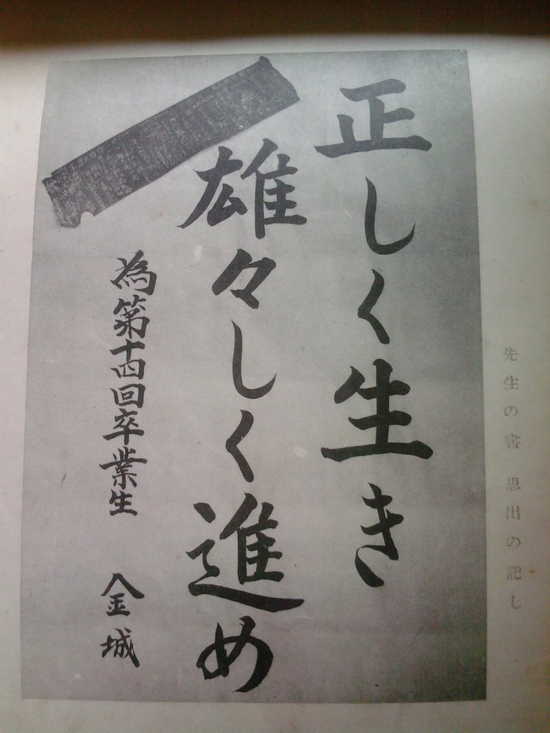 正しく生き
雄々しく進め
為第十四回卒業生
金城
先生の書 思出の記し